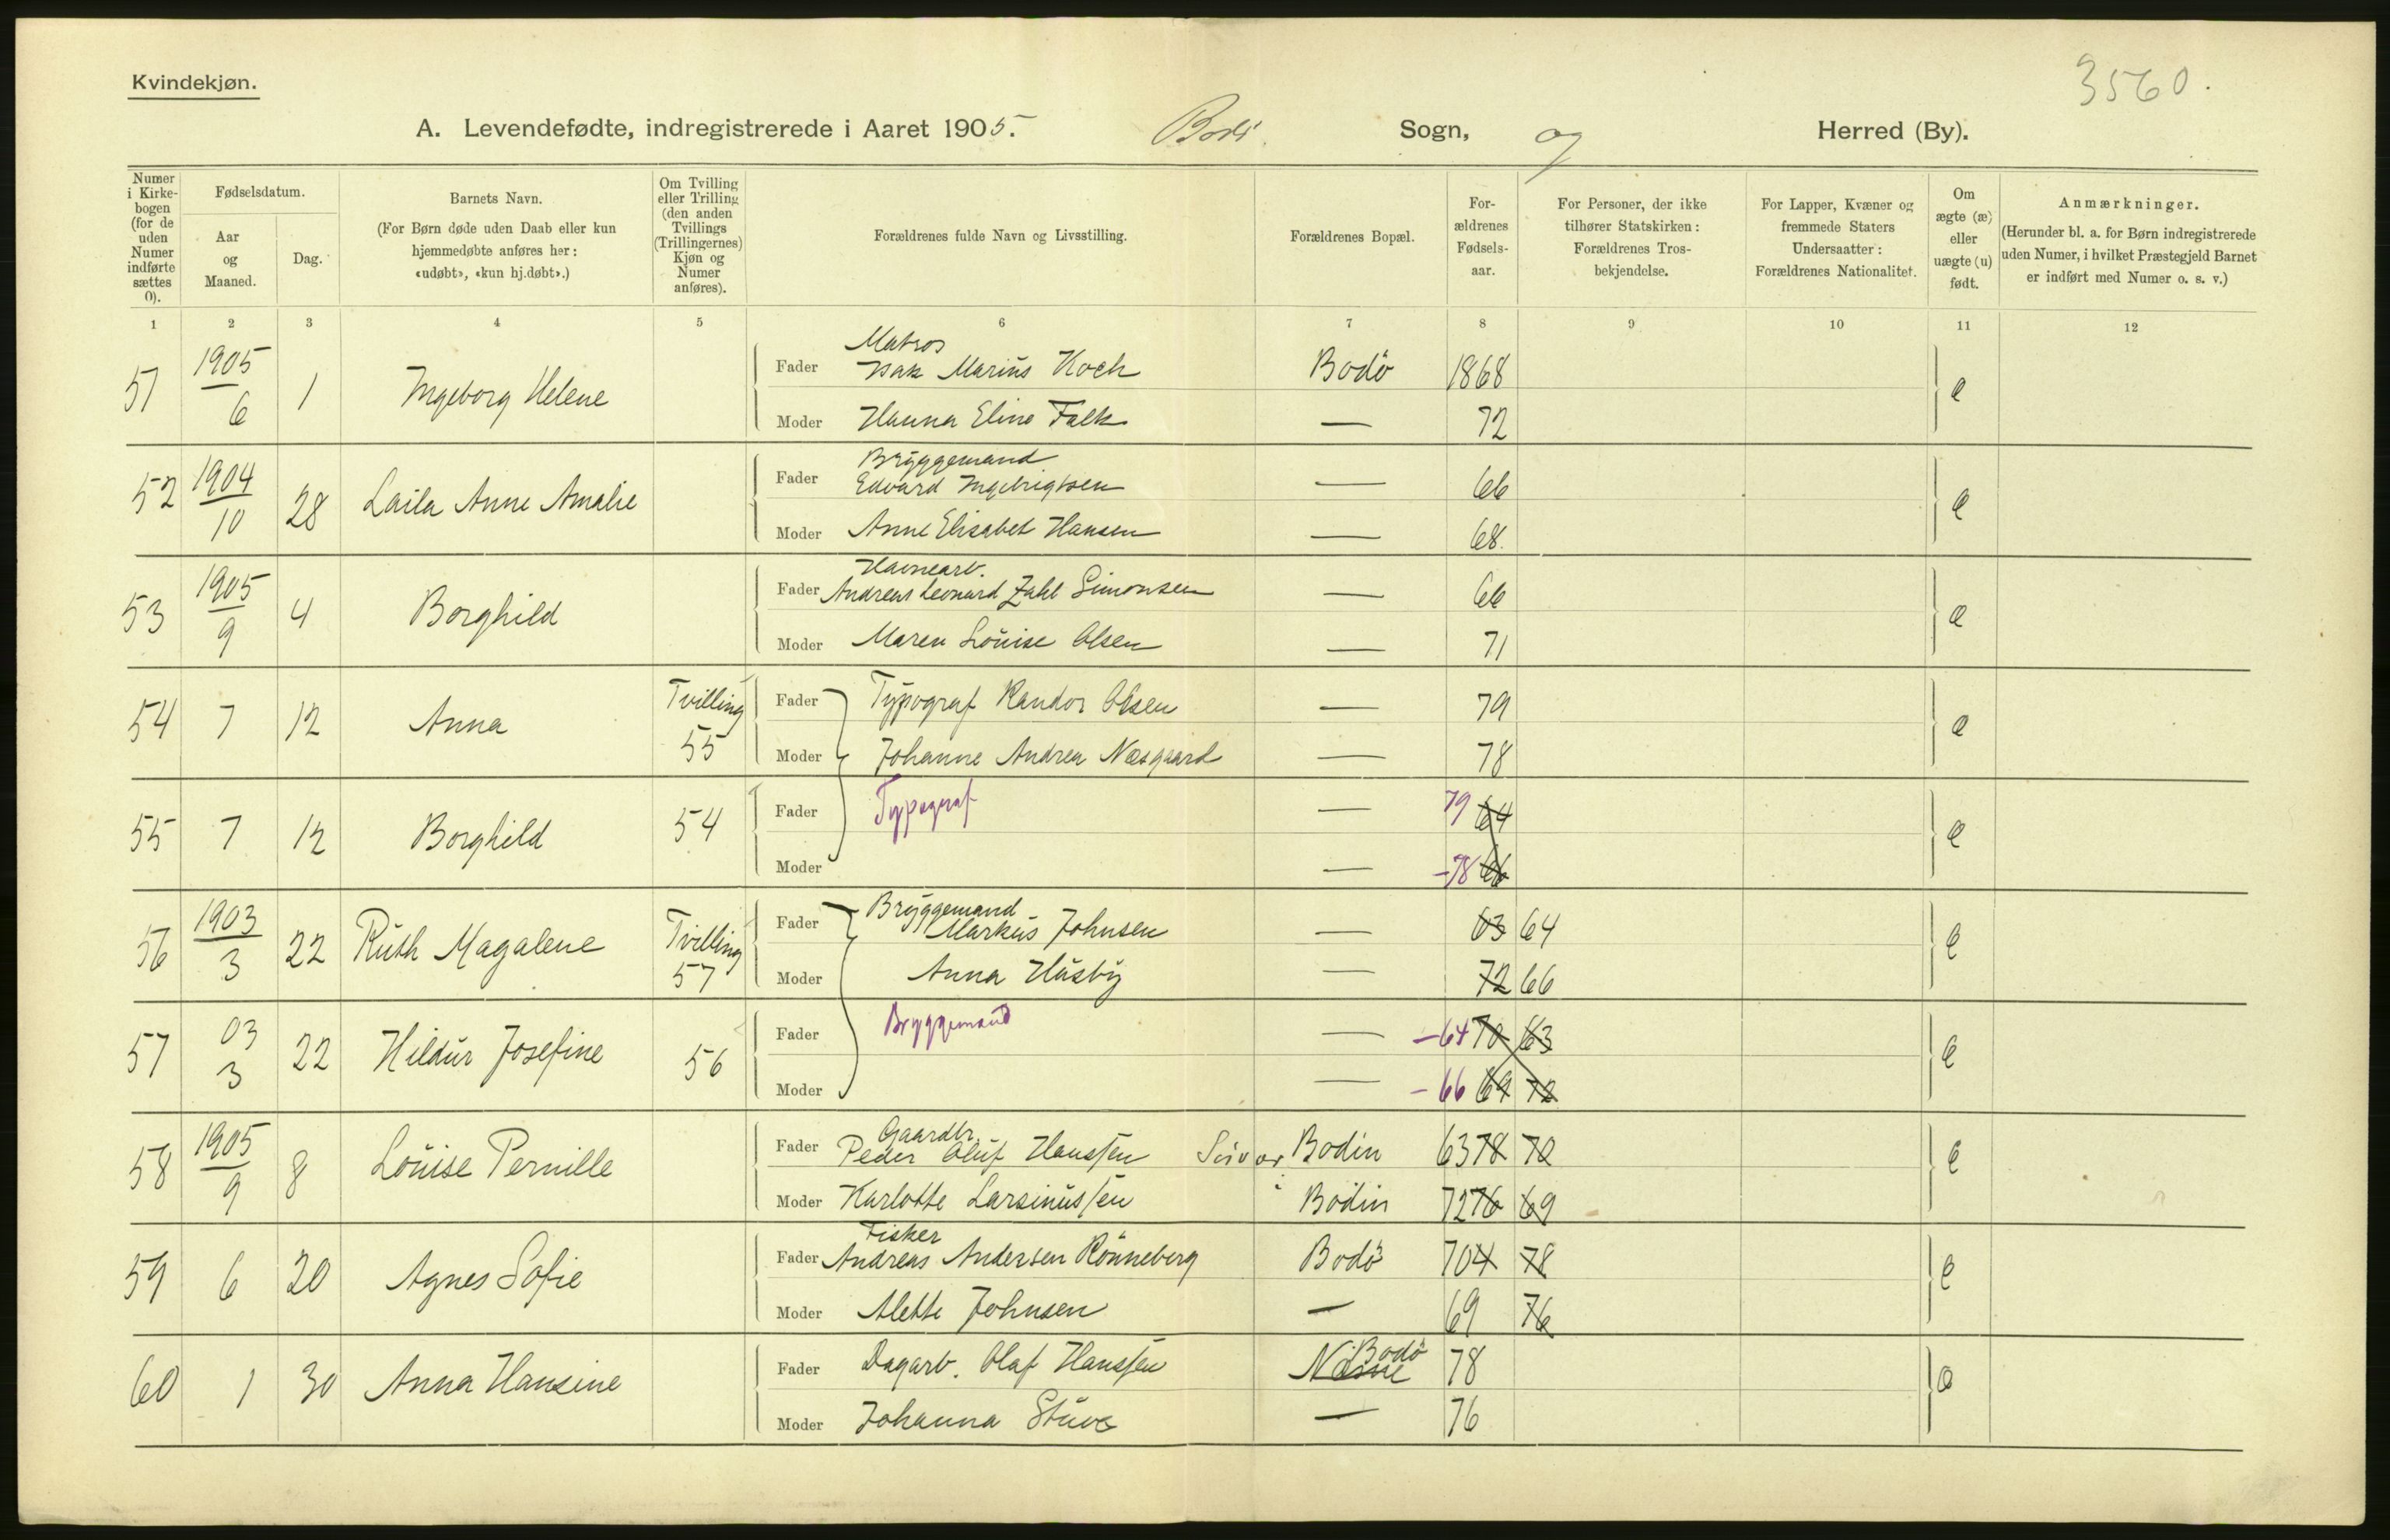 Kvindekjøn.
3560.
A. Levendefødte, indregistrerede i Aaret 1905. Bodø Sogn, og Herred (By).
Numer i Kirkebogen (for de uden Numer indførte sættes 0).
Fødselsdatum.
Aar og Maaned.
Dag.
Barnets Navn.
(For Børn døde uden Daab eller kun hjemmedøbte anføres her: «udøbt», «kun hj.døbt».)
Om Tvilling eller Trilling (den anden Tvillings (Trillingernes) Kjøn og Numer anføres).
Forældrenes fulde Navn og Livsstilling.
Forældrenes Bopæl.
Forældrenes Fødselsaar.
For Personer, der ikke tilhører Statskirken: Forældrenes Trosbekjendelse.
For Lapper, Kvæner og fremmede Staters Undersaatter: Forældrenes Nationalitet.
Om ægte (æ) eller uægte (u) født.
Anmærkninger.
(Herunder bl. a. for Børn indregistrerede uden Numer, i hvilket Præstegjeld Barnet er indført med Numer o. s. v.)
1 2 3 4 5 6 7 8 9 10 11 12
51 1905 6 1 Ingeborg Helene
Fader Matros Isak Marius Koch Bodø 1868 æ
Moder Hanna Eline Falk — 72
52 1904 10 28 Laila Anne Amalie
Fader Bryggemand Edvard Ingebrigtsen — 66 æ
Moder Anne Elisabet Hansen — 68.
53 1905 9 4 Borghild
Fader Havnearb. Andreas Leonard Zahl Simonsen — 66 æ
Moder Maren Louise Olsen — 71
54 7 12 Anna Tvilling 55
Fader Typograf Randor Olsen — 79 æ
Moder Johanne Andrea Næsgaard — 78
55 7 12 Borghild 54
Fader Typograf — 79 64 æ
Moder — -78 66
56 1903 3 22 Ruth Magalene Tvilling 57
Fader Bryggemand Markus Johnsen — 63 64 æ
Moder Anna Husby — 72 66
57 03 3 22 Hildur Josefine 56
Fader Bryggemand — -64 70 63 æ
Moder — -66 69 72
58 1905 9 8 Louise Pernille
Fader Gaardbr. Peder Oluf Hanssen Bodin 63 78 70 æ
Moder Karlotte Larsinussen Bodin 72 76 69
59 6 20 Agnes Sofie
Fader Fisker Andreas Andersen Rønneberg Bodø 70 78 æ
Moder Alette Johnsen — 69 76
60 1 30 Anna Hansine
Fader Dagarb. Olaf Hanssen Bodø 78 æ
Moder Johanna Stuve — 76